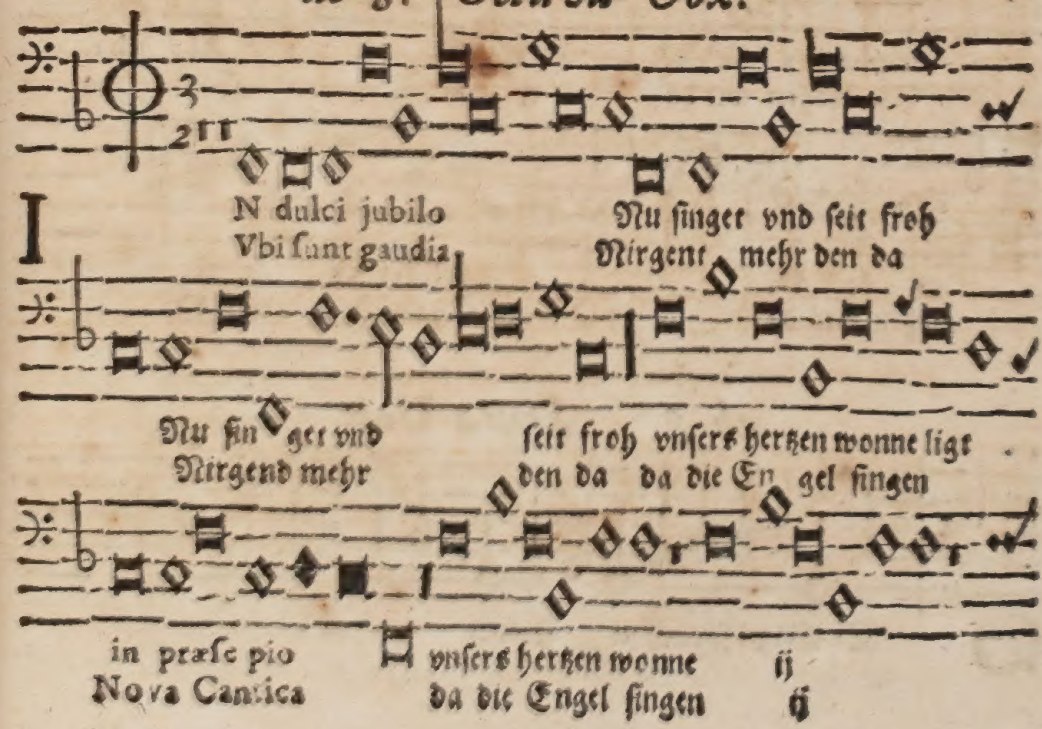 IN dulci jubilo Nu singet vnd seit froh
Vbi sunt gaudia Nirgent mehr den da
Nu sin get vnd seit froh vnsers hertzen wonne ligt
Nirgend mehr den da da die En gel singen
in præse pio vnsers hertzen wonne ij
Nova Cantica da die Engel singen ij